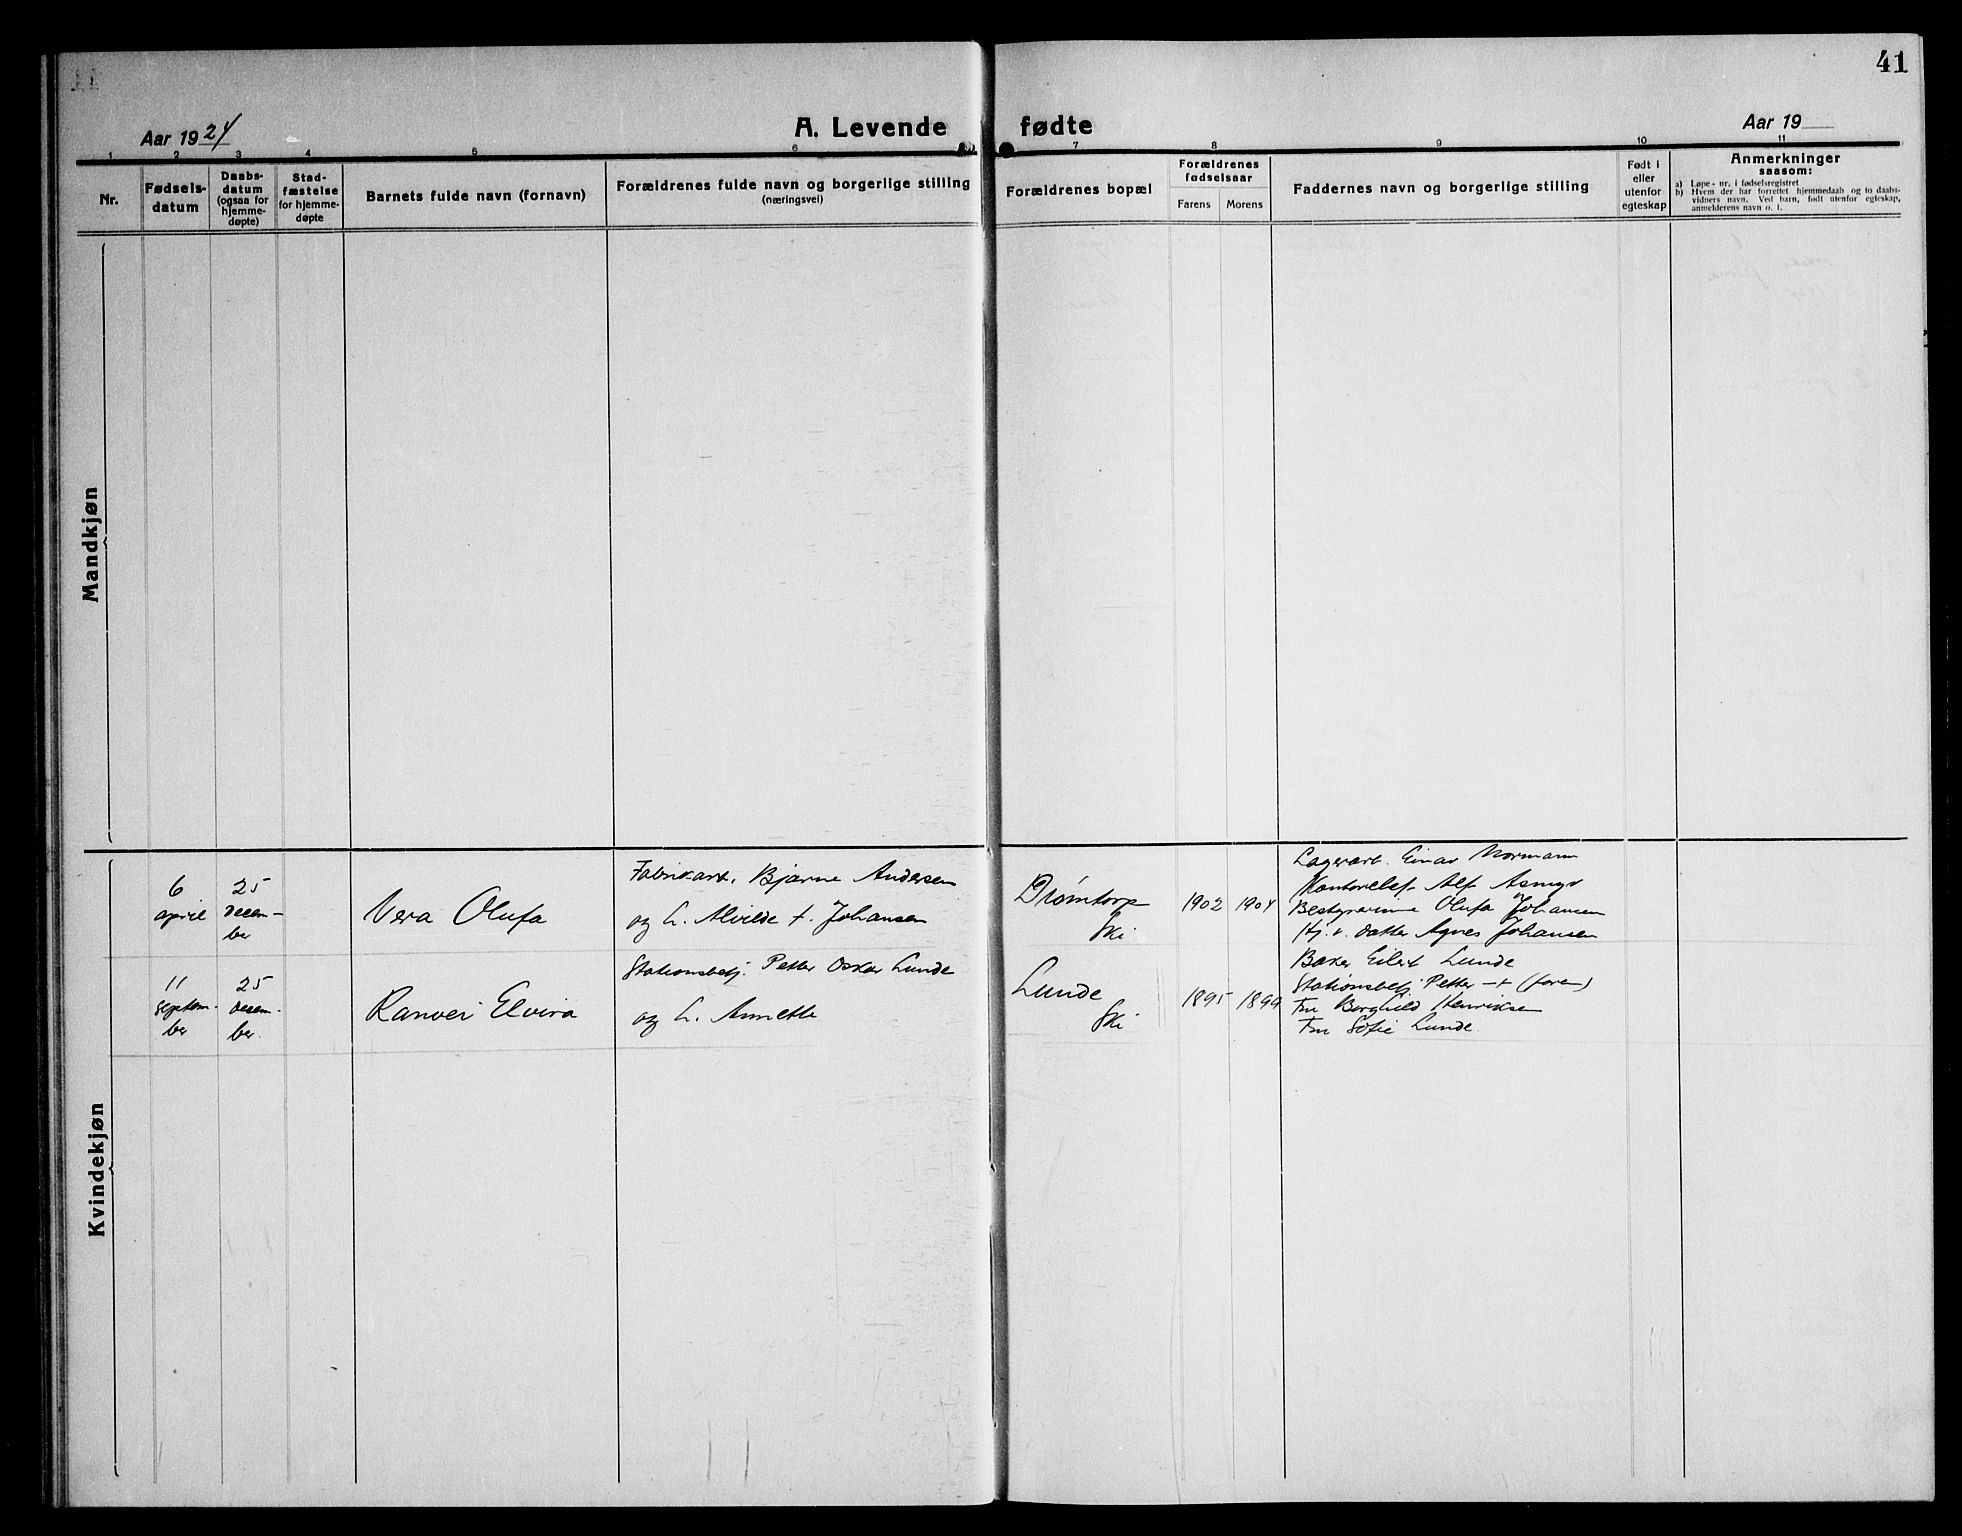 41
Aar 1924
A. Levende fødte
Aar 19
1 2 3 4 5 6 7 8 9 10 11
Nr.
Fødsels-
datum
Daabs-
datum
(ogsaa for
hjemme-
døpte)
Stad-
fæstelse
for hjemme-
døpte
Barnets fulde navn (fornavn)
Forældrenes fulde navn og borgerlige stilling
(næringsvei)
Forældrenes bopæl
Forældrenes
fødselsaar
Farens Morens
Faddernes navn og borgerlige stilling
Født i
eller
utenfor
egteskap
Anmerkninger
saasom:
a) Løpe-nr. i fødselsregistret
b) Hvem der har forrettet hjemmedaab og to daabs-
vidners navn. Ved barn, født utenfor egteskap,
anmelderens navn o. l.
Mandkjøn
Kvindekjøn
6
april
25
decem-
ber
Vera Olufa
Fabrikarb. Bjarne Andersen
og h. Alvilde f. Johansen
Drømtorp
Ski
1902 1904
Lagerarb. Einar Normann
Kontorelef Alf Asmyr
Bestyrerinne Olufa Johansen
Hj.v. datter Agnes Johansen
11
septem-
ber
25
decem-
ber.
Ranvei Elvira
Stationsbetj. Petter Oskar Lunde
og h. Annette
Lunde
Ski
1895 1899
Baker Eilert Lunde
Stationsbetj. Petter -"- (faren)
Fru Borghild Henriksen
Fru Sofie Lunde